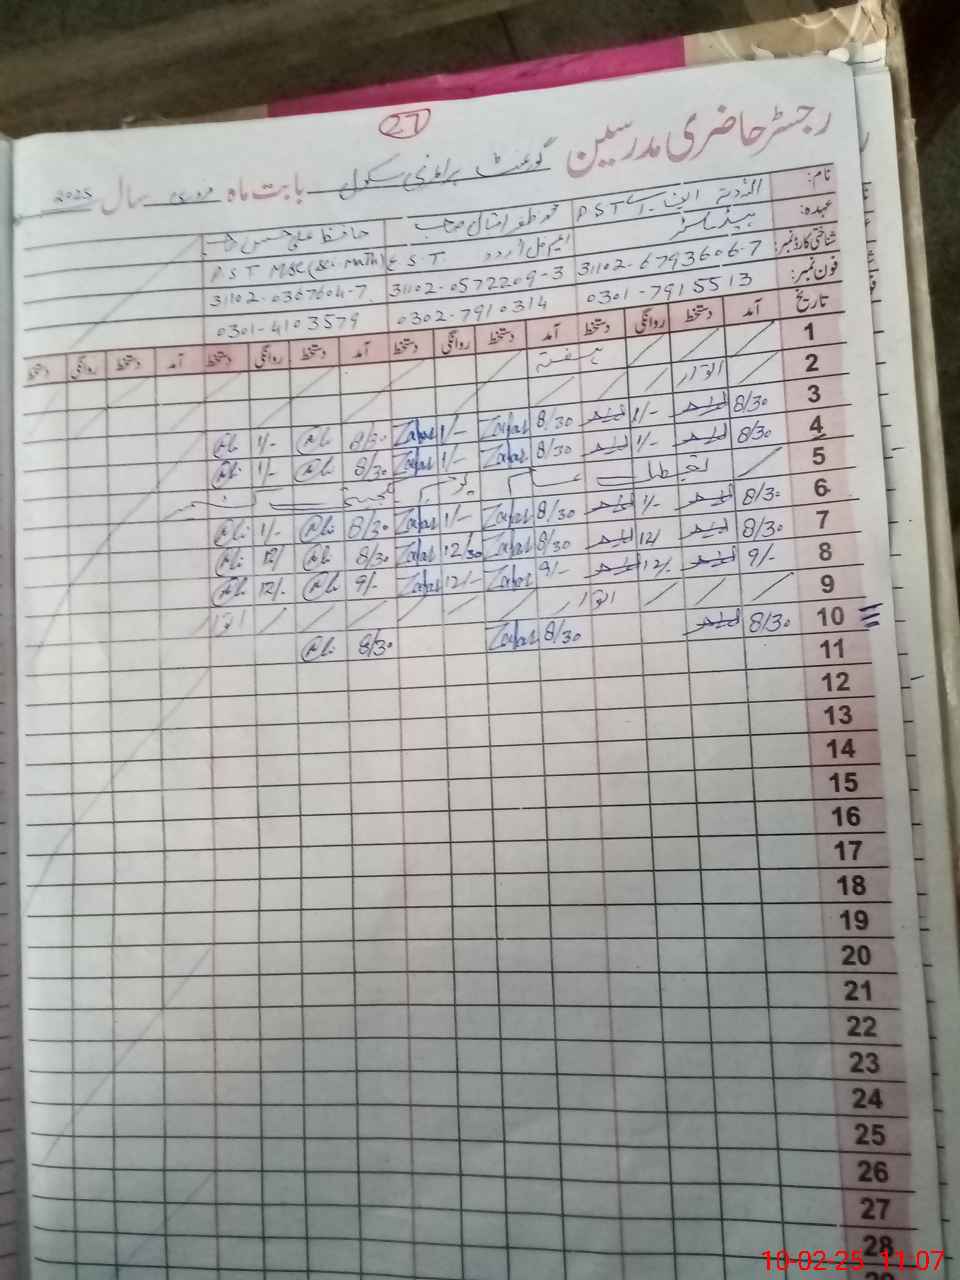 27
رجسٹر حاضری مدرسین گورنمنٹ پرائمری سکول بابت ماہ فروری سال 2025
نام: اللہ دتہ P S T محمد ظفر اقبال صاحب حافظ علی حسن
عہدہ: ہیڈ ماسٹر ایم اے اردو E. S. T. P S T MSC (
شناختی کارڈ نمبر: 31102-6793606-7 31102-0572209-3 31102-0367604-7
فون نمبر: 0301-7915513 0302-7910314 0301-4103579
تاریخ آمد دستخط روانگی دستخط آمد دستخط روانگی دستخط آمد دستخط روانگی دستخط آمد دستخط روانگی دستخط
1 ہفتہ
2 اتوار
3 8/30 1/- 8/30 Zafar 1/- Zafar 8/30 Ali 1/- Ali
4 8/30 1/- 8/30 Zafar 1/- Zafar 8/30 Ali 1/- Ali
5 تعطیل یوم کشمیر
6 8/30 1/- 8/30 Zafar 1/- Zafar 8/30 Ali 1/- Ali
7 8/30 12/ 8/30 Zafar 12/30 Zafar 8/30 Ali 12/ Ali
8 9/- 12/- 9/- Zafar 12/- Zafar 9/- Ali 12/- Ali
9 اتوار اتوار
10 8/30 8/30 Zafar 8/30 Ali
11
12
13
14
15
16
17
18
19
20
21
22
23
24
25
26
27
28
10-02-25 11:07